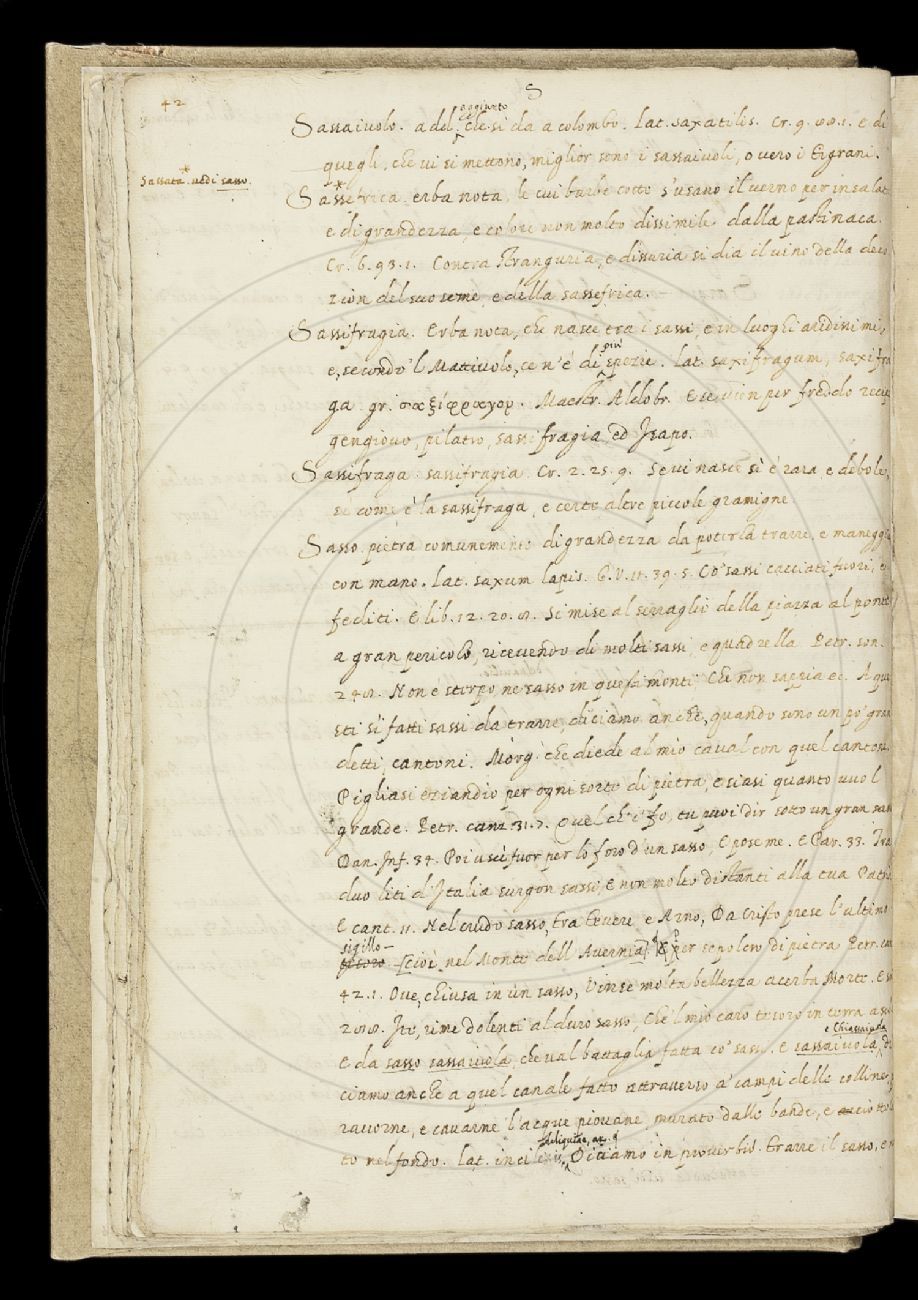 42
S
aggiunto
Sassaiuolo. add. che si da a colombo. Lat. saxatilis. Cr. 9. 88. 1. E di
quegli, che vi si mettono, miglior sono i sassaiuoli, o vero i terrani.
Sassata. vedi sasso.
Sassefrica. erba nota, le cui barbe cotte s'usano il verno per insalat
e di grandezza, e colore non molto dissimile dalla pastinaca.
Cr. 6. 93. 1. Contra stranguria, e dissuria si dia il vino della deco
zion del suo seme, e della sassefrica.
Sassifragia. Erba nota, che nasce tra i sassi, e in luoghi aridissimi,
più
e, secondo 'l Mattiuolo, ce n'è di spezie. Lat. saxifragum, saxifra
ga. gr. σαξίφραγον. Maestr. Aldobr. E se vien per freddo
gengiovo, pilatro, sassifragia ed Isapo.
Sassifraga. sassifragia. Cr. 2. 25. 9. Se vi nasce sì è rara, e debole,
se come è la sassifraga, e certe altre piccole gramigne.
Sasso. pietra comunemente di grandezza da poterla trarre, e maneggia
con mano. Lat. saxum lapis. G. V. 11. 39. 5. Co' sassi cacciati fuori, e
fediti. E lib. 12. 20. 8. Si mise al serraglio della piazza al ponte
a gran pericolo, ricevendo di molti sassi, e quadrella. Petr. son.
248. Non è sterpo, ne sasso in questi monti. Che non sappia ec. A que
sti sì fatti sassi da trarre, diciamo anche, quando sono un po' gran
detti, cantoni. Morg. che diede al mio caval con quel canton.
Pigliasi eziandio per ogni sorte di pietra, e siasi quanto vuol
grande. Petr. canz. 31. 7. Quel ch' i' fo, tu puoi dir sotto un gran sas
Dan. Inf. 34. Poi uscì fuor per lo foro d'un sasso, E pose me. E Par. 33. Tra
duo liti d'Italia surgon sassi, E non molto distanti alla tua Patri
E cant. 11. Nel crudo sasso, tra Tevere e Arno, Da Cristo prese l'ultimo
sigillo
[cioè nel Monte dell Avernia]. per sepolcro di pietra Petr. can
42. 1. Ove, chiusa in un sasso, Vinse molta bellezza acerba Morte. E s
288. Ite, rime dolenti al duro sasso, Che 'l mio caro tesoro in terra asc
e Chiassaiuola
E da sasso sassaiuola, che val battaglia fatta co' sassi. E sassaiuola, di
ciamo anche a quel canale fatto attraverso a' campi delle colline,
raccorne, e cavarne l'acque piovane, murato dalle bande, e acciotto
to nel fondo. Lat. Diciamo in proverbio. Trarre il sasso, e